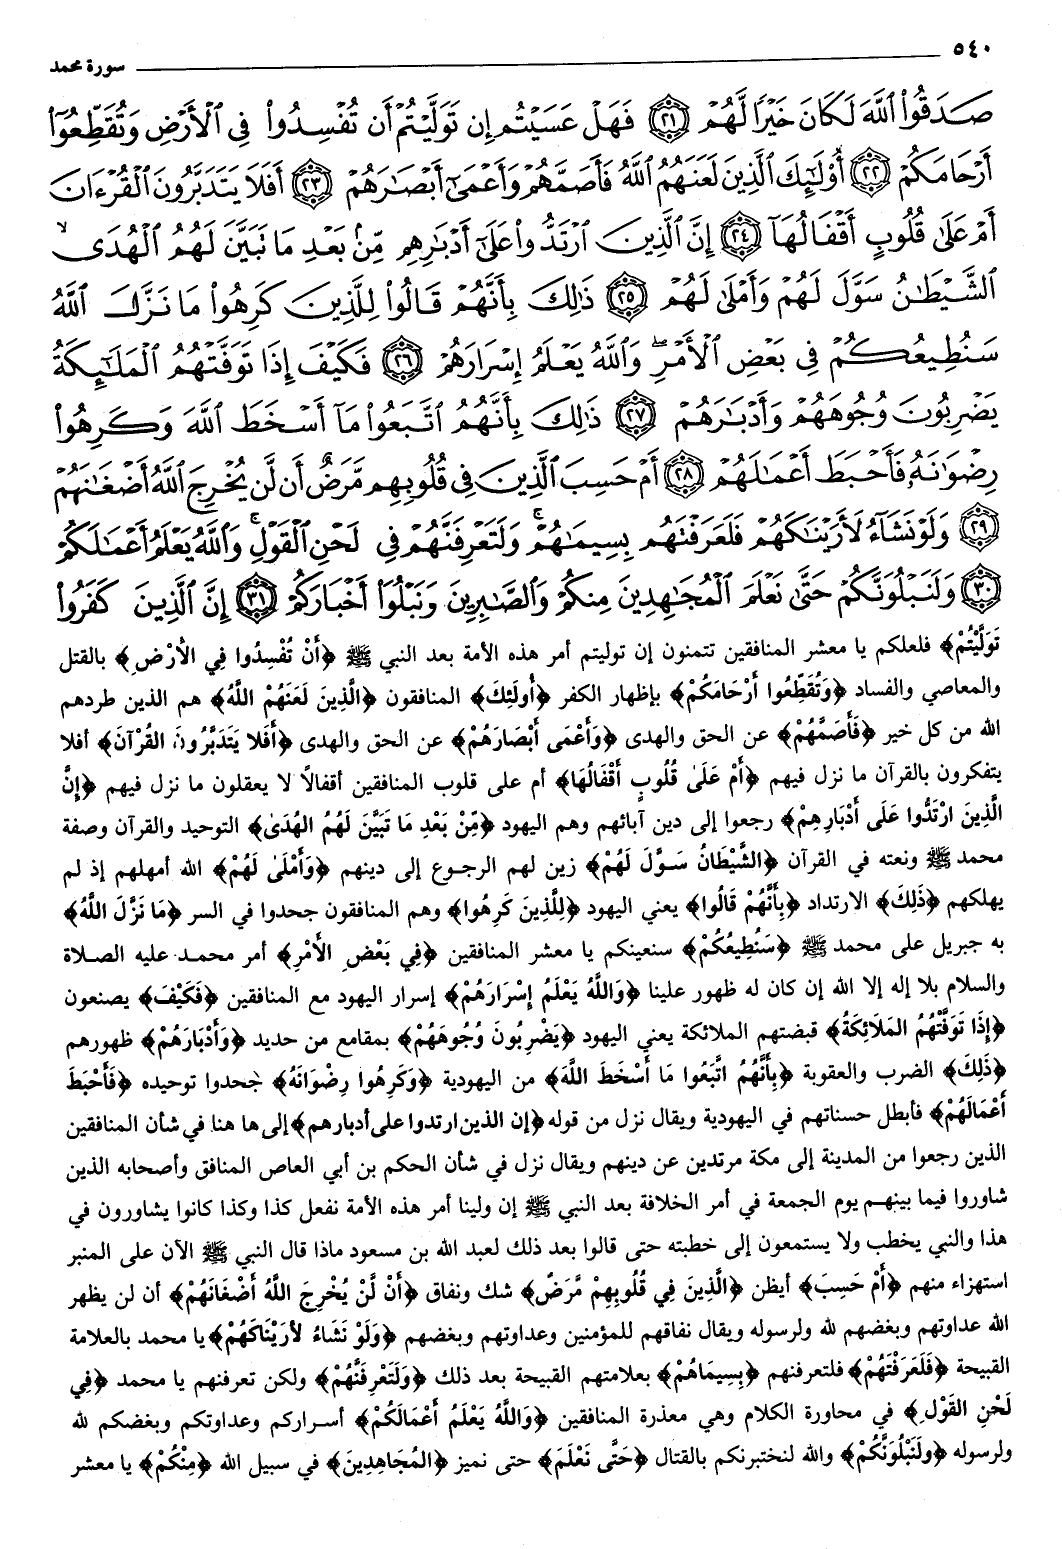 ٥٤٠
سورة محمد
صَدَقُوا۟ ٱللَّهَ لَكَانَ خَيْرًا لَّهُمْ ﴿٢١﴾ فَهَلْ عَسَيْتُمْ إِن تَوَلَّيْتُمْ أَن تُفْسِدُوا۟ فِى ٱلْأَرْضِ وَتُقَطِّعُوٓا۟
أَرْحَامَكُمْ ﴿٢٢﴾ أُو۟لَٰٓئِكَ ٱلَّذِينَ لَعَنَهُمُ ٱللَّهُ فَأَصَمَّهُمْ وَأَعْمَىٰٓ أَبْصَٰرَهُمْ ﴿٢٣﴾ أَفَلَا يَتَدَبَّرُونَ ٱلْقُرْءَانَ
أَمْ عَلَىٰ قُلُوبٍ أَقْفَالُهَآ ﴿٢٤﴾ إِنَّ ٱلَّذِينَ ٱرْتَدُّوا۟ عَلَىٰٓ أَدْبَٰرِهِم مِّنۢ بَعْدِ مَا تَبَيَّنَ لَهُمُ ٱلْهُدَى ۙ
ٱلشَّيْطَٰنُ سَوَّلَ لَهُمْ وَأَمْلَىٰ لَهُمْ ﴿٢٥﴾ ذَٰلِكَ بِأَنَّهُمْ قَالُوا۟ لِلَّذِينَ كَرِهُوا۟ مَا نَزَّلَ ٱللَّهُ
سَنُطِيعُكُمْ فِى بَعْضِ ٱلْأَمْرِ ۖ وَٱللَّهُ يَعْلَمُ إِسْرَارَهُمْ ﴿٢٦﴾ فَكَيْفَ إِذَا تَوَفَّتْهُمُ ٱلْمَلَٰٓئِكَةُ
يَضْرِبُونَ وُجُوهَهُمْ وَأَدْبَٰرَهُمْ ﴿٢٧﴾ ذَٰلِكَ بِأَنَّهُمُ ٱتَّبَعُوا۟ مَآ أَسْخَطَ ٱللَّهَ وَكَرِهُوا۟
رِضْوَٰنَهُۥ فَأَحْبَطَ أَعْمَٰلَهُمْ ﴿٢٨﴾ أَمْ حَسِبَ ٱلَّذِينَ فِى قُلُوبِهِم مَّرَضٌ أَن لَّن يُخْرِجَ ٱللَّهُ أَضْغَٰنَهُمْ
﴿٢٩﴾ وَلَوْ نَشَآءُ لَأَرَيْنَٰكَهُمْ فَلَعَرَفْتَهُم بِسِيمَٰهُمْ ۚ وَلَتَعْرِفَنَّهُمْ فِى لَحْنِ ٱلْقَوْلِ ۚ وَٱللَّهُ يَعْلَمُ أَعْمَٰلَكُمْ
﴿٣٠﴾ وَلَنَبْلُوَنَّكُمْ حَتَّىٰ نَعْلَمَ ٱلْمُجَٰهِدِينَ مِنكُمْ وَٱلصَّٰبِرِينَ وَنَبْلُوَا۟ أَخْبَارَكُمْ ﴿٣١﴾ إِنَّ ٱلَّذِينَ كَفَرُوا۟
تَوَلَّيْتُمْ﴾ فلعلكم يا معشر المنافقين تتمنون إن توليتم أمر هذه الأمة بعد النبي ﷺ ﴿أَنْ تُفْسِدُوا فِي الأَرْضِ﴾ بالقتل
والمعاصي والفساد ﴿وَتُقَطِّعُوا أَرْحَامَكُمْ﴾ بإظهار الكفر ﴿أُولَئِكَ﴾ المنافقون ﴿الَّذِينَ لَعَنَهُمْ اللَّهُ﴾ هم الذين طردهم
الله من كل خير ﴿فَأَصَمَّهُمْ﴾ عن الحق والهدى ﴿وَأَعْمَى أَبْصَارَهُمْ﴾ عن الحق والهدى ﴿أَفَلا يَتَدَبَّرُونَ القُرْآنَ﴾ أفلا
يتفكرون بالقرآن ما نزل فيهم ﴿أَمْ عَلَىٰ قُلُوبٍ أَقْفَالُهَا﴾ أم على قلوب المنافقين أقفالاً لا يعقلون ما نزل فيهم ﴿إِنَّ
الَّذِينَ ارْتَدُّوا عَلَى أَدْبَارِهِمْ﴾ رجعوا إلى دين آبائهم وهم اليهود ﴿مِّنْ بَعْدِ مَا تَبَيَّنَ لَهُمُ الهُدَىٰ﴾ التوحيد والقرآن وصفة
محمد ﷺ ونعته في القرآن ﴿الشَّيْطَانُ سَوَّلَ لَهُمْ﴾ زين لهم الرجوع إلى دينهم ﴿وَأَمْلَىٰ لَهُمْ﴾ الله أمهلهم إذ لم
يهلكهم ﴿ذَلِكَ﴾ الارتداد ﴿بِأَنَّهُمْ قَالُوا﴾ يعني اليهود ﴿لِلَّذِينَ كَرِهُوا﴾ وهم المنافقون جحدوا في السر ﴿مَا نَزَّلَ اللَّهُ﴾
به جبريل على محمد ﷺ ﴿سَنُطِيعُكُمْ﴾ سنعينكم يا معشر المنافقين ﴿فِي بَعْضِ الأَمْرِ﴾ أمر محمد عليه الصلاة
والسلام بلا إله إلا الله إن كان له ظهور علينا ﴿وَاللَّهُ يَعْلَمُ إِسْرَارَهُمْ﴾ إسرار اليهود مع المنافقين ﴿فَكَيْفَ﴾ يصنعون
﴿إِذَا تَوَفَّتْهُمُ المَلَائِكَةُ﴾ قبضتهم الملائكة يعني اليهود ﴿يَضْرِبُونَ وُجُوهَهُمْ﴾ بمقامع من حديد ﴿وَأَدْبَارَهُمْ﴾ ظهورهم
﴿ذَلِكَ﴾ الضرب والعقوبة ﴿بِأَنَّهُمُ اتَّبَعُوا مَا أَسْخَطَ اللَّهَ﴾ من اليهودية ﴿وَكَرِهُوا رِضْوَانَهُ﴾ جحدوا توحيده ﴿فَأَحْبَطَ
أَعْمَالَهُمْ﴾ فأبطل حسناتهم في اليهودية ويقال نزل من قوله ﴿إن الذين ارتدوا على أدبارهم﴾ إلى ها هنا في شأن المنافقين
الذين رجعوا من المدينة إلى مكة مرتدين عن دينهم ويقال نزل في شأن الحكم بن أبي العاص المنافق وأصحابه الذين
شاوروا فيما بينهم يوم الجمعة في أمر الخلافة بعد النبي ﷺ إن ولينا أمر هذه الأمة نفعل كذا وكذا كانوا يشاورون في
هذا والنبي يخطب ولا يستمعون إلى خطبته حتى قالوا بعد ذلك لعبد الله بن مسعود ماذا قال النبي ﷺ الآن على المنبر
استهزاء منهم ﴿أَمْ حَسِبَ﴾ أيظن ﴿الَّذِينَ فِي قُلُوبِهِمْ مَّرَضٌ﴾ شك ونفاق ﴿أَنْ لَّنْ يُخْرِجَ اللَّهُ أَضْغَانَهُمْ﴾ أن لن يظهر
الله عداوتهم وبغضهم لله ولرسوله ويقال نفاقهم للمؤمنين وعداوتهم وبغضهم ﴿وَلَوْ نَشَاءُ لأَرَيْنَاكَهُمْ﴾ يا محمد بالعلامة
القبيحة ﴿فَلَعَرَفْتَهُمْ﴾ فلتعرفنهم ﴿بِسِيمَاهُمْ﴾ بعلامتهم القبيحة بعد ذلك ﴿وَلَتَعْرِفَنَّهُمْ﴾ ولكن تعرفنهم يا محمد ﴿فِي
لَحْنِ القَوْلِ﴾ في محاورة الكلام وهي معذرة المنافقين ﴿وَاللَّهُ يَعْلَمُ أَعْمَالَكُمْ﴾ أسراركم وعداوتكم وبغضكم لله
ولرسوله ﴿وَلَنَبْلُوَنَّكُمْ﴾ والله لنختبرنكم بالقتال ﴿حَتَّى نَعْلَمَ﴾ حتى نميز ﴿المُجَاهِدِينَ﴾ في سبيل الله ﴿مِنْكُمْ﴾ يا معشر